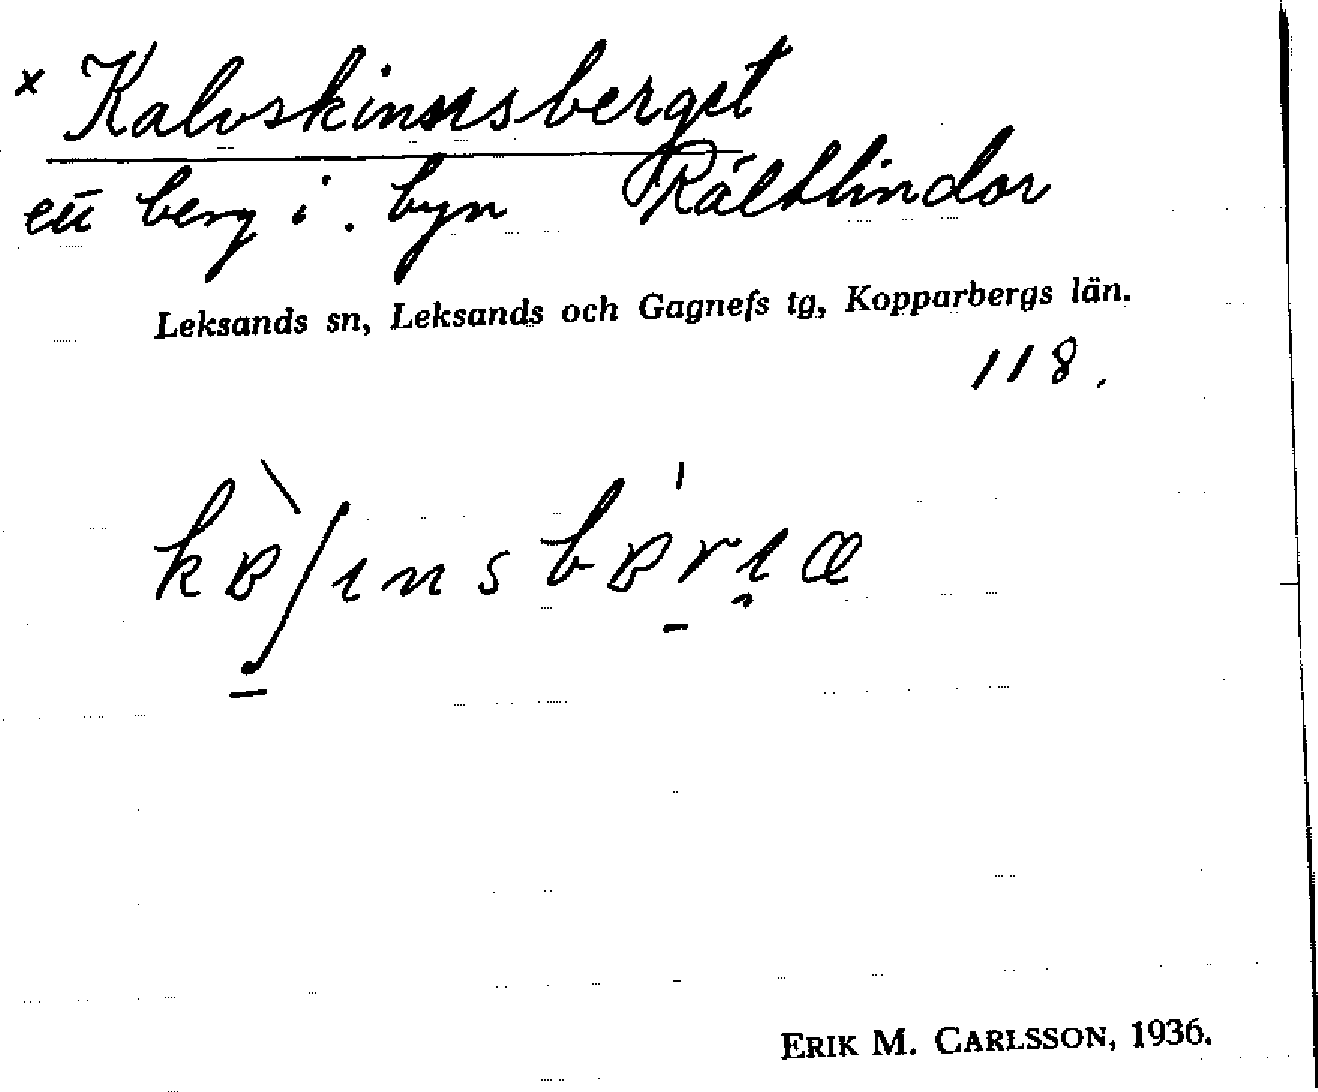 x Kalvskinnsberget
ett berg i byn Rältlindor
Leksands sn, Leksands och Gagnefs tg, Kopparbergs län.
118.
ERIK M. CARLSSON, 1936.